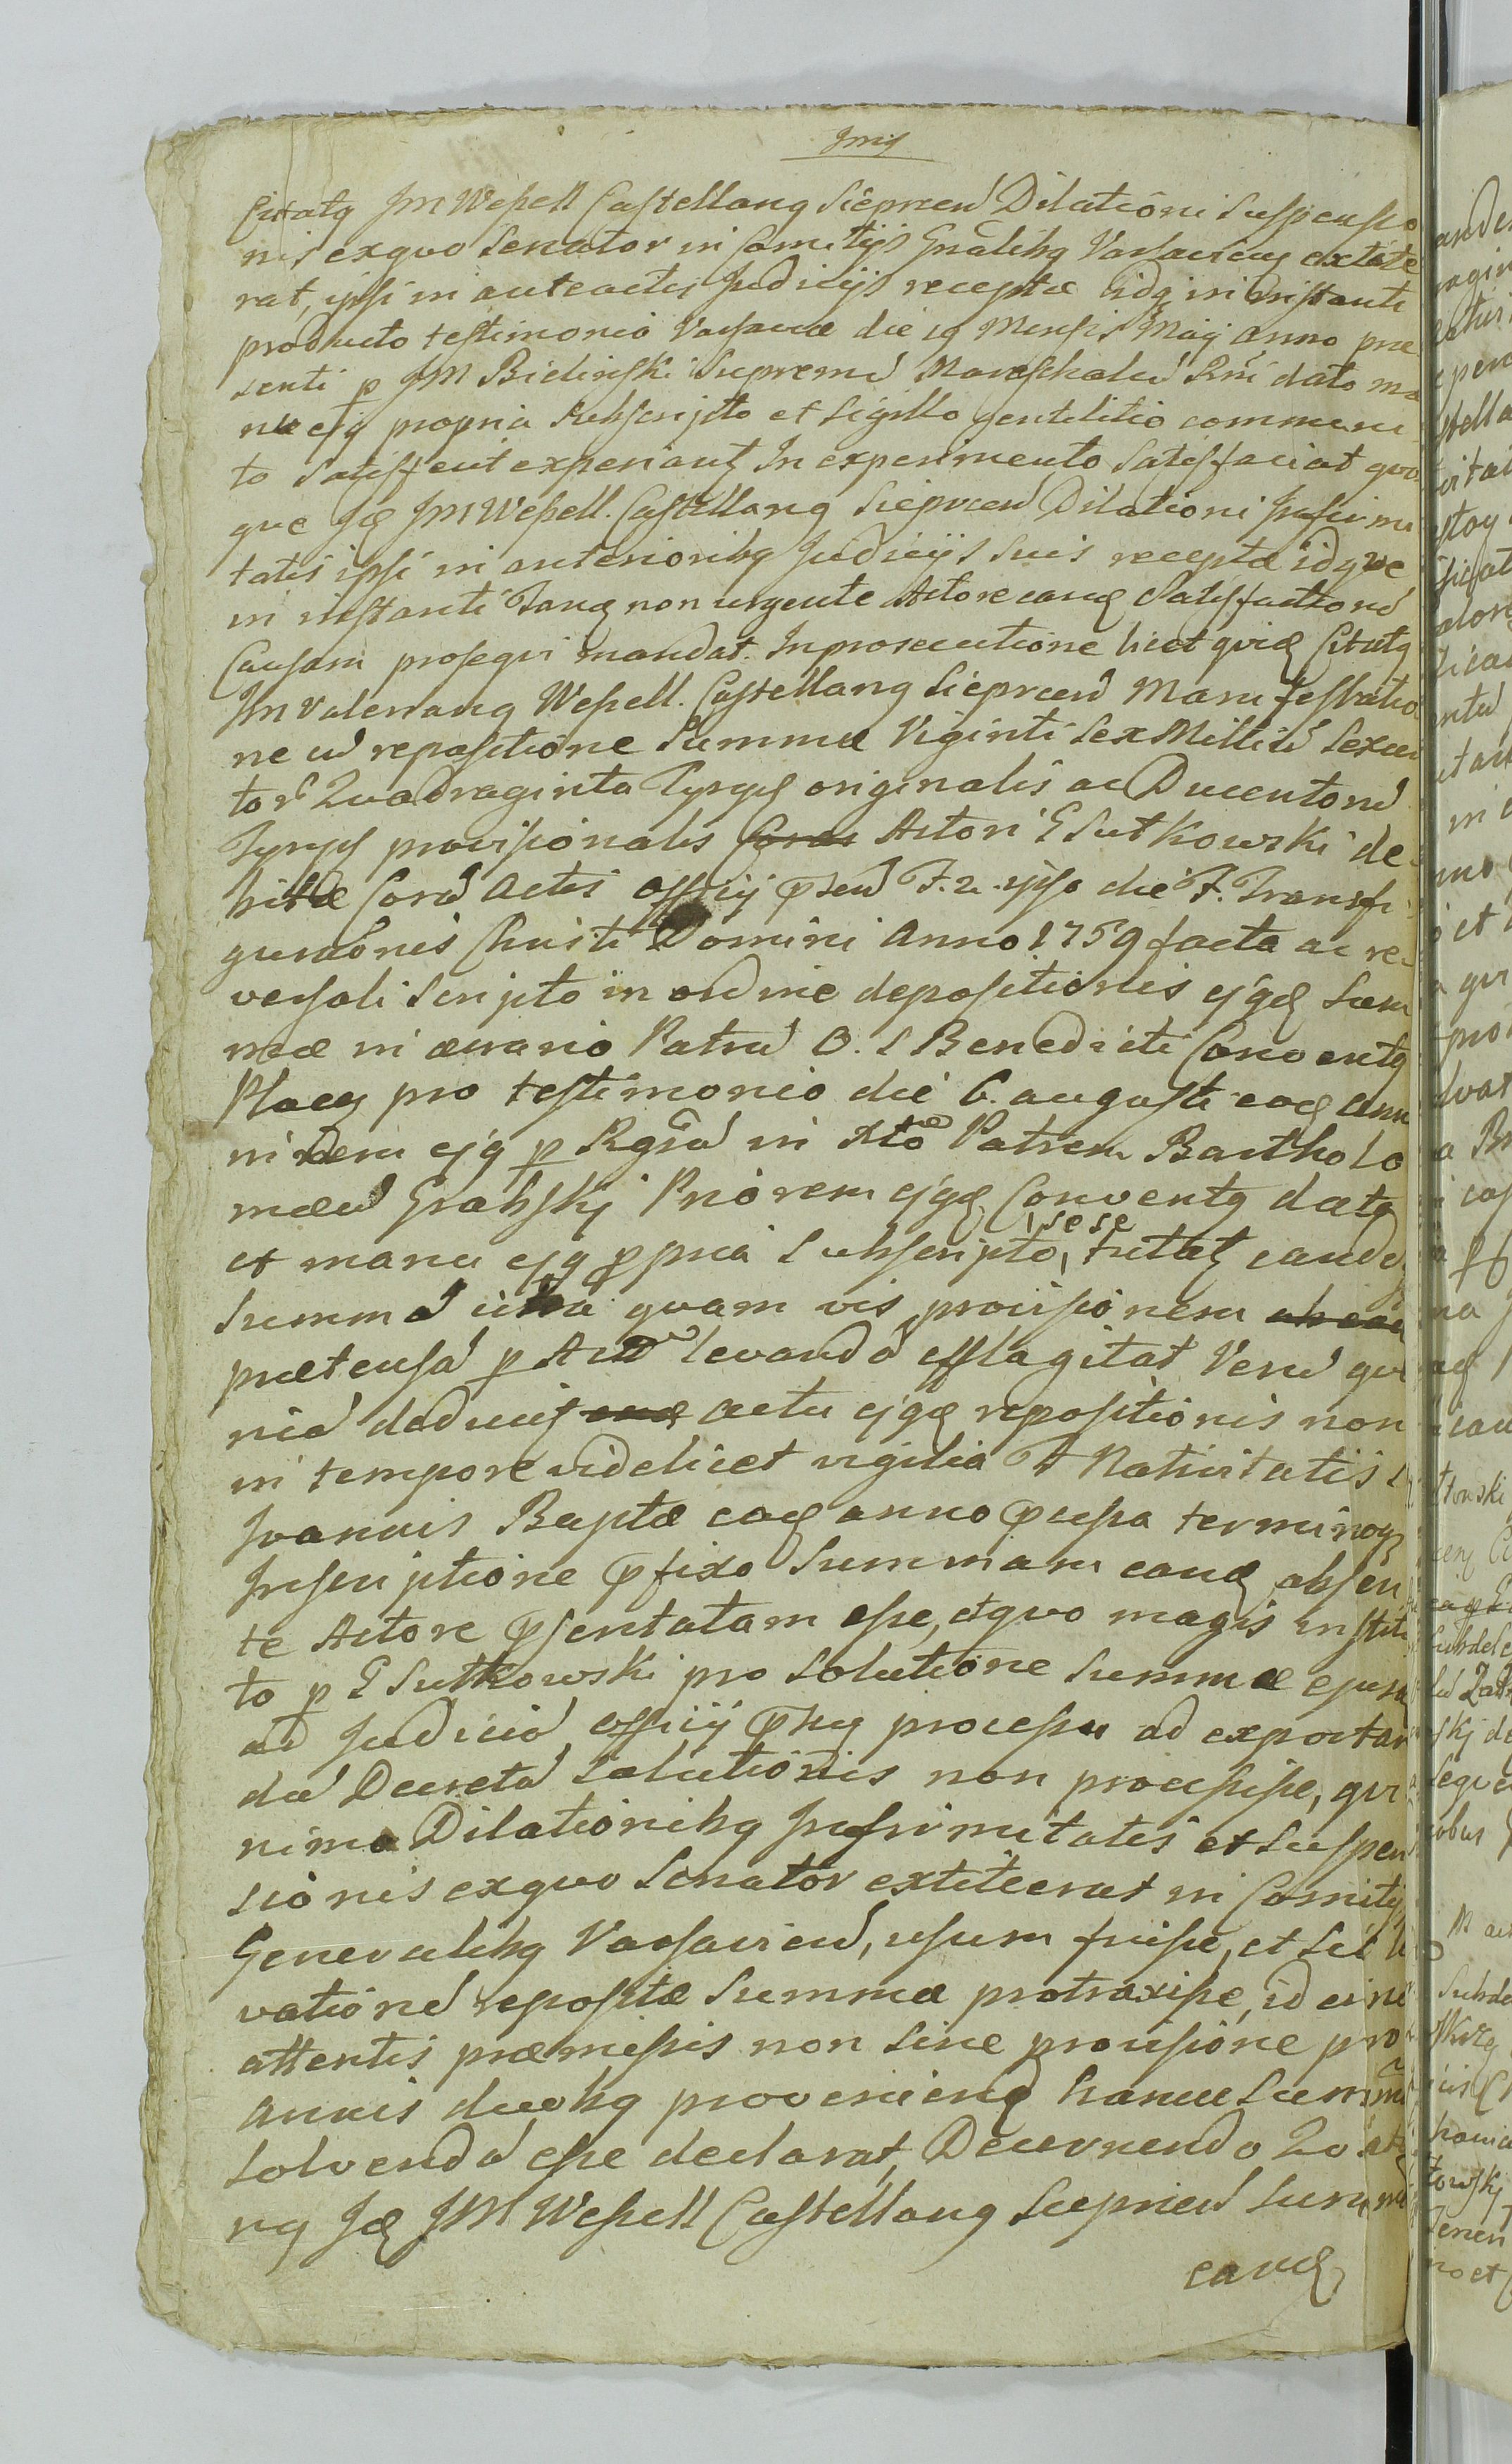 Jmis
Citatq JM Weßell Castellanq Sieprcen Dilationi Suspensio
nis exquo Senator in Comitijs Gnalibq Varsavien extite
rat, ipsi in anteactis Judicijs receptæ idq in instanti
producto testimonio Varsaviæ die 19 Mensis Maij Anno præ
senti p JM Bielinski Supremu Mareschalcu Rni dato ma
nu ejq propria subscripto et sigillo gentilitio communi
to Satisffeut experiantz In experimento Satisfaciat quo
que Jdē JM Weßell. Castellanq Sieprcen Dilationi Infirmi
tatis ipsi in anterioribq Judicijs suis receptæ idque
in instanti Tanq non urgente Actore eand Satisfaction
Causam prosequi mandat. In prosecutione licet quid Citatq
JM Valerianq Weßell. Castellanq Sieprcen Manifestatio
ne cu repositione Summæ Viginti Sex Milliu Sexcen
tor Quadraginta Tynph originalis ac Ducentoru
Tynph provisionalis Actori G Sutkowski de
bitæ Cora Actis Officij psen F. 2. ipso die F. Transfi
guraonis Christi Domini Anno 1759 facta ac re
versali Scripto in ordine depositionis ejqd Sum
mæ in ærario Patru O. S Benedicti Conventq
Plocen pro testimonio die 6. augusti eod Anni
nidem ejq p Rgiosu in Xto Patrem Bartholo
mæu Grabskj Priorem ejqd Conventq datq
et manu ejq ppria Subscripto, sese tutatz eandē
Summa ultra quam vis provisionem
prætensa p Act levanda efflagitat Veru qu
nia deducit actu ejqd repositionis non
in tempore videlicet vigilia F Nativitatis S
Joannis Baptæ eod anno pcessa terminoq
Inscriptione pfixo Summam eand absen
te Actore psentatam eße, et quo magis institu
to p G Sutkowski pro solutione Summæ ejusd
ad Judiciu officij psentis proceßu ad exportan
da Decreta Solutionis non proceßiße, qui
nimo Dilationibq Infirmitatis et Suspen
sionis exquo Senator extiterat in Comitijs
Generalibq Varsavien, usum fuiße, et sic le
vatione repositæ Summæ protraxiße, id circo
attentis præmißis non sine provisione pro
Annis duobq provenienti hance Summa
Solvenda eße declarat, Decernendo Quate
nq Jdē JM Weßell Castellanq Sieprcen Summa
eand